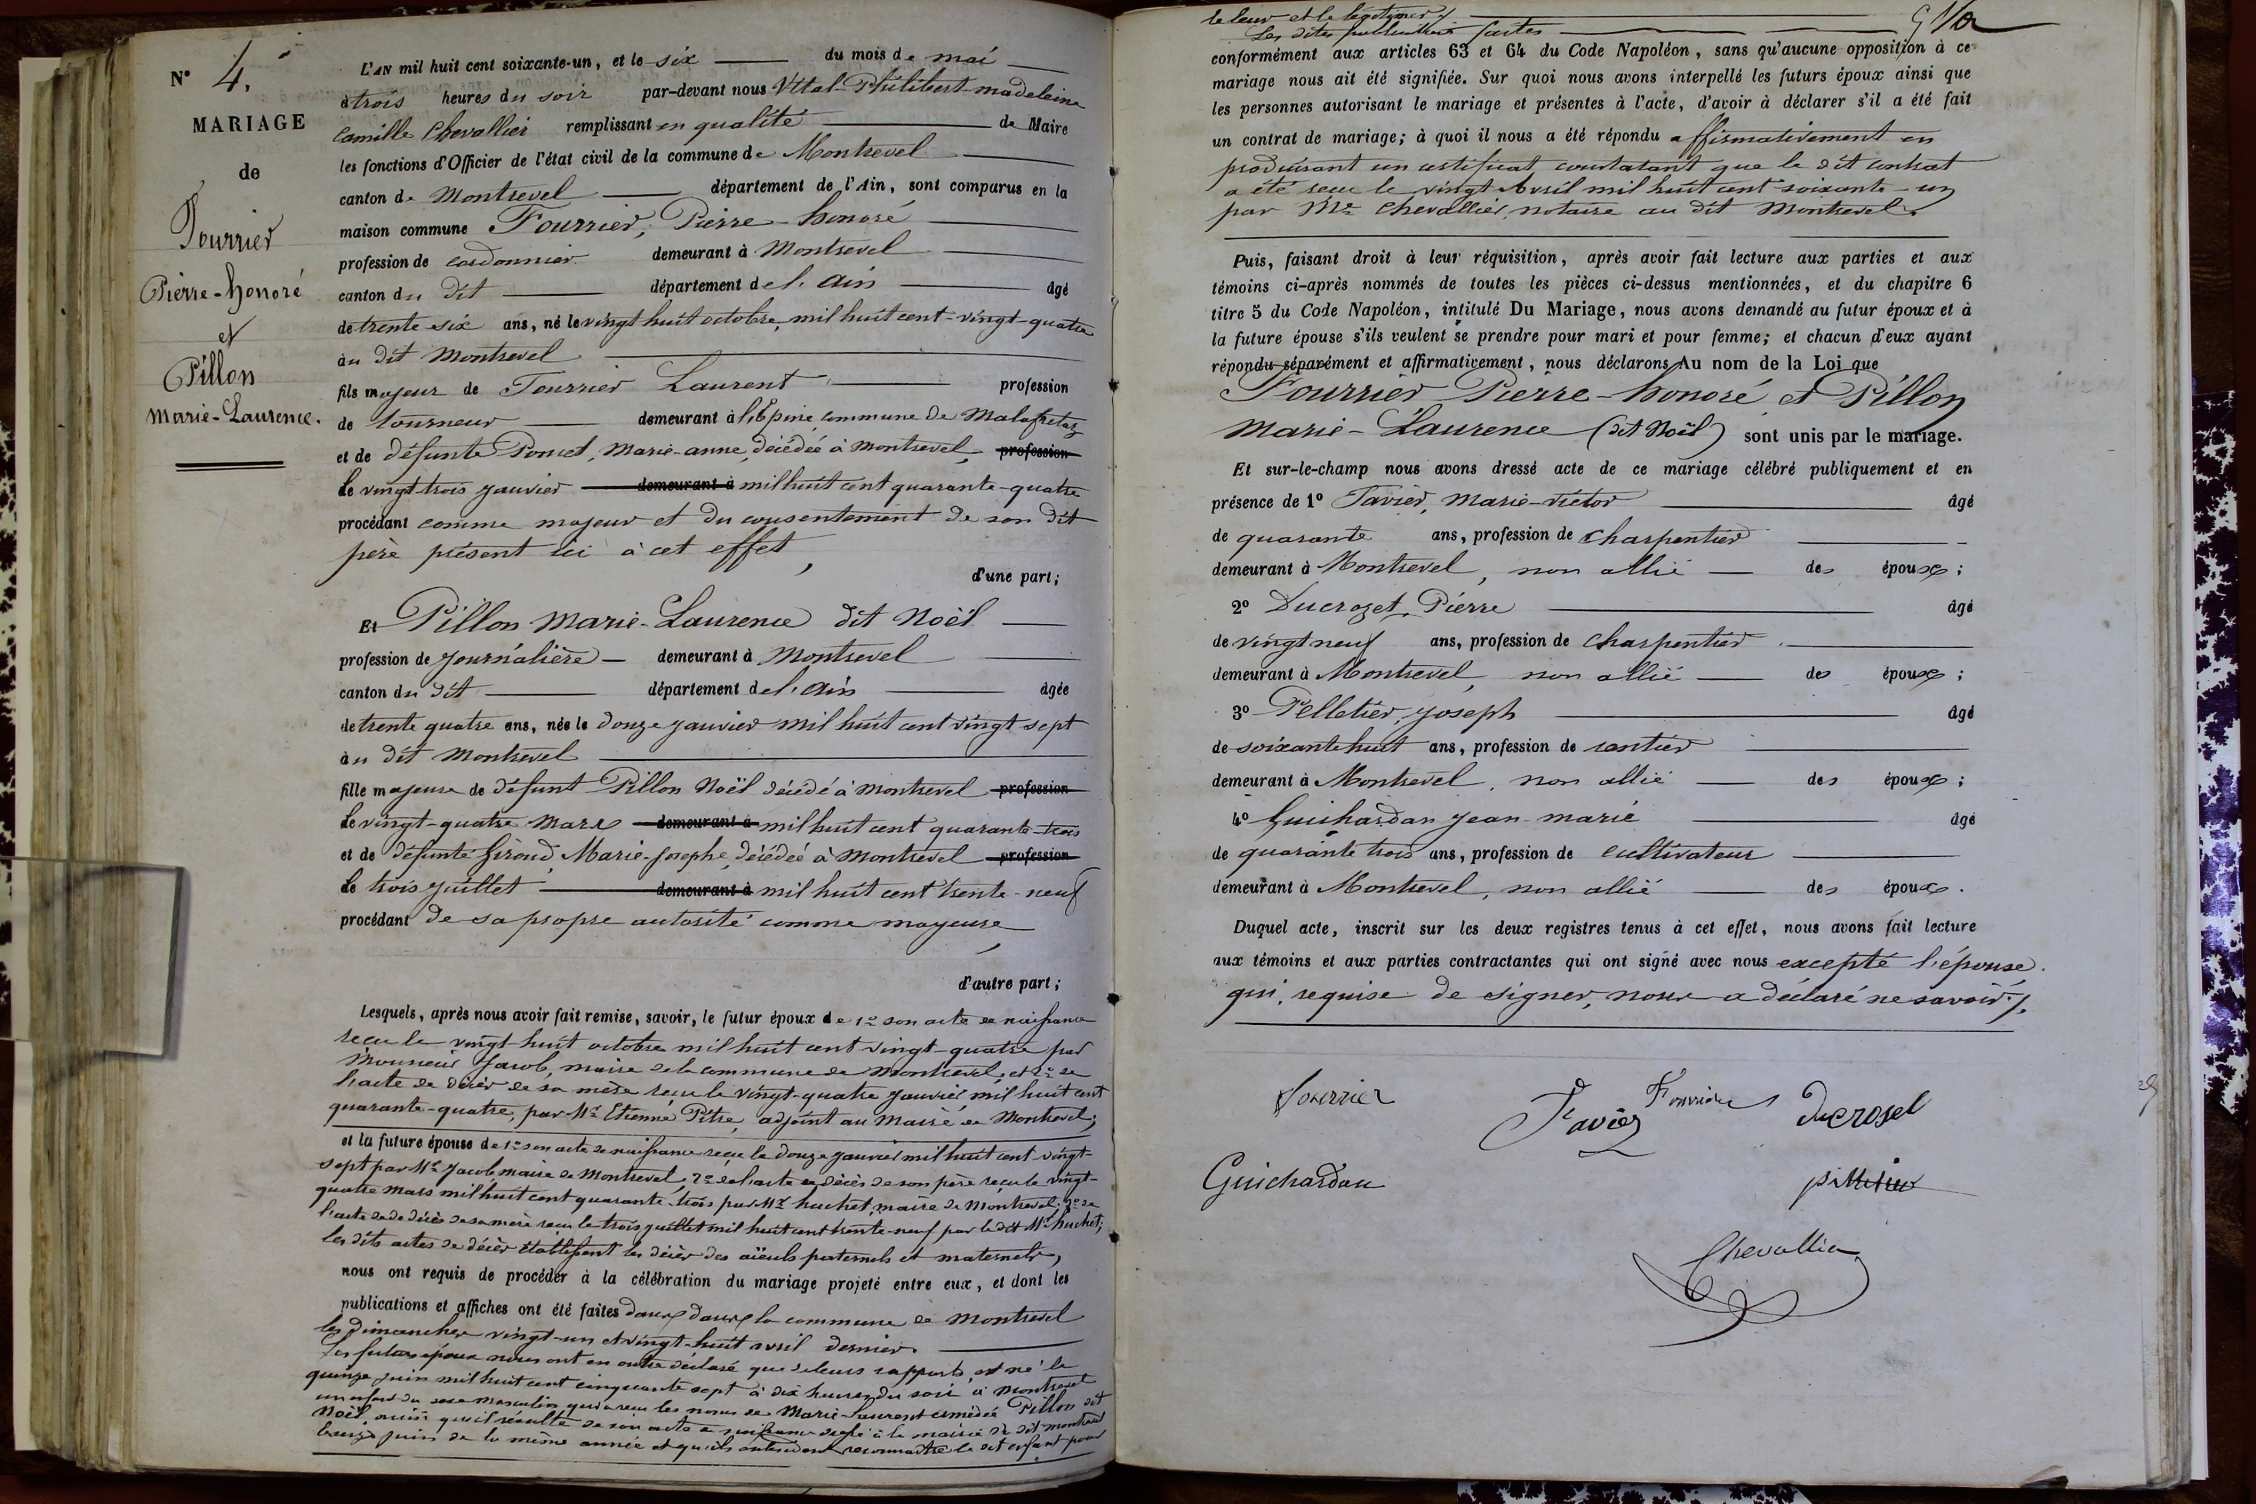 N° 4.
MARIAGE
de
Fourrier
Pierre-honoré
et
Pillon
Marie-Laurence.
L'AN mil huit cent soixante-un, et le six du mois de mai
à trois heures du soir par-devant nous Vital-Philibert-madeleine
Camille Chevallier remplissant en qualité de Maire
les fonctions d'Officier de l'état civil de la commune de Montrevel
canton de Montrevel département de l'Ain, sont comparus en la
maison commune Fourrier, Pierre-honoré
profession de cordonnier demeurant à Montrevel
canton du dit département de l'Ain âgé
de trente six ans, né le vingt huit octobre mil huit cent-vingt-quatre
au dit Montrevel
fils majeur de Fourrier Laurent profession
de tourneur demeurant à l'épine, commune de Malafretaz
et de défunte Poncet, Marie-anne, décédée à Montrevel, profession
le vingt-trois janvier demeurant à mil huit cent quarante-quatre
procédant comme majeur et du consentement de son dit
père présent ici à cet effet,
d'une part;
Et Pillon Marie-Laurence dit Noël
profession de journalière demeurant à Montrevel
canton du dit département de l'Ain âgée
de trente quatre ans, née le douze janvier mil huit cent vingt sept
au dit Montrevel
fille majeure de défunt Pillon Noël décédé à Montrevel profession
le vingt-quatre Mars demeurant à mil huit cent quarante-trois
et de défunte Giroud, Marie-Josephe, décédée à Montrevel profession
le trois juillet demeurant à mil huit cent trente-neuf
procédant de sa propre autorité comme majeure
d'autre part;
Lesquels, après nous avoir fait remise, savoir, le futur époux de 1° son acte de naissance
reçu le vingt huit octobre mil huit cent vingt-quatre par
Monsieur Jacob, maire de la commune de Montrevel, et 2° de
l'acte de décès de sa mère reçu le vingt-quatre janvier mil huit cent
quarante-quatre, par Mr Etienne Pitre, adjoint au Maire de Montrevel;
et la future épouse de 1° son acte de naissance reçu le douze janvier mil huit cent vingt-
sept par Mr Jacob maire de Montrevel, 2° de l'acte de décès de son père reçu le vingt-
quatre Mars mil huit cent quarante-trois par Mr huchet, maire de Montrevel; 3° de
l'acte de décès de sa mère reçu le trois juillet mil huit cent trente-neuf par le dit Mr huchet;
les dits actes de décès établissent les décès des aïeuls paternels et maternels,
nous ont requis de procéder à la célébration du mariage projeté entre eux, et dont les
publications et affiches ont été faites dans la commune de Montrevel
les dimanches vingt-un et vingt-huit avril dernier.
Les futurs époux nous ont en outre déclaré que de leurs rapports est né le
quinze juin mil huit cent cinquante sept à dix heures du soir à Montrevel
un enfant du sexe masculin qui a reçu les noms de Marie-Laurent Amédée Pillon dit
Noël, ainsi qu'il résulte de son acte de naissance à la mairie du dit Montrevel
juin de la même année et qu'ils entendent reconnaître le dit enfant pour
le leur et le légitimer
Les dites publications faites
conformément aux articles 63 et 64 du Code Napoléon, sans qu'aucune opposition à ce
mariage nous ait été signifiée. Sur quoi nous avons interpellé les futurs époux ainsi que
les personnes autorisant le mariage et présentes à l'acte, d'avoir à déclarer s'il a été fait
un contrat de mariage; à quoi il nous a été répondu affirmativement en
produisant un certificat constatant que le dit contrat
a été reçu le vingt Avril mil huit cent soixante-un
par Me Chevallier, notaire au dit Montrevel.
Puis, faisant droit à leur réquisition, après avoir fait lecture aux parties et aux
témoins ci-après nommés de toutes les pièces ci-dessus mentionnées, et du chapitre 6
titre 5 du Code Napoléon, intitulé Du Mariage, nous avons demandé au futur époux et à
la future épouse s'ils veulent se prendre pour mari et pour femme; et chacun d'eux ayant
répondu séparément et affirmativement, nous déclarons Au nom de la Loi que
Fourrier Pierre-honoré et Pillon
Marie-Laurence (dit Noël) sont unis par le mariage.
Et sur-le-champ nous avons dressé acte de ce mariage célébré publiquement et en
présence de 1° Favier, Marie-Victor âgé
de quarante ans, profession de charpentier
demeurant à Montrevel, non allié des époux;
2° Ducrozet, Pierre âgé
de vingt neuf ans, profession de charpentier
demeurant à Montrevel, non allié des époux;
3° Pelletier, Joseph âgé
de soixante huit ans, profession de rentier
demeurant à Montrevel, non allié des époux;
4° Guichardan Jean-marie âgé
de quarante trois ans, profession de cultivateur
demeurant à Montrevel, non allié des époux.
Duquel acte, inscrit sur les deux registres tenus à cet effet, nous avons fait lecture
aux témoins et aux parties contractantes qui ont signé avec nous excepté l'épouse
qui, requise de signer, nous a déclaré ne savoir.
fourrier
Favier
Fourrier
Ducrosel
Guichardan
Chevallier